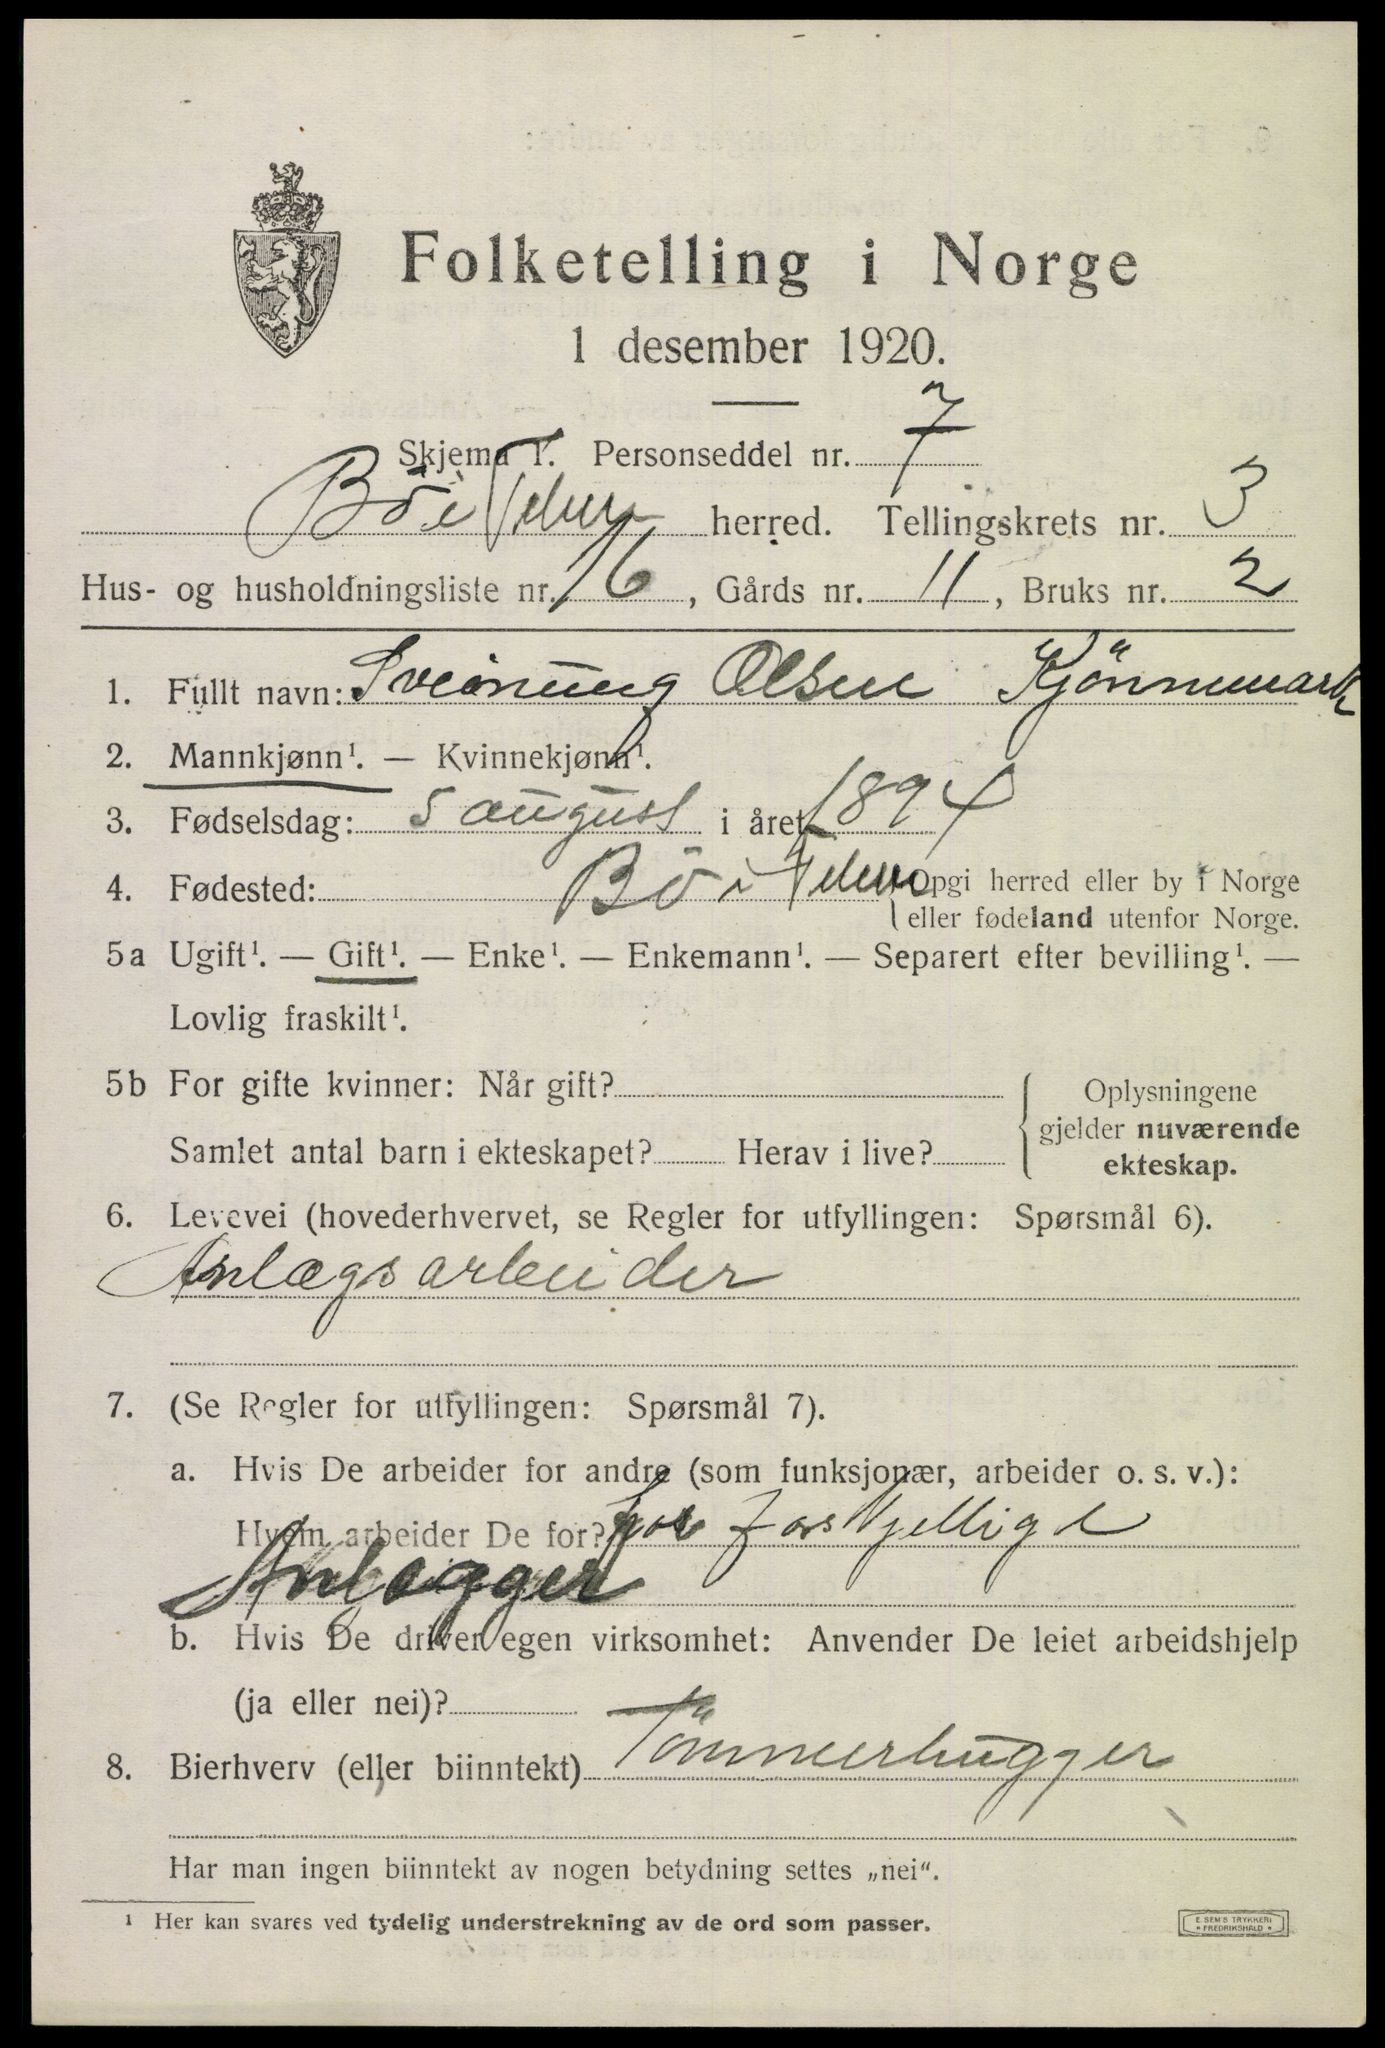 Folketelling i Norge
1 desember 1920.
Skjema 1. Personseddel nr. 7
Bö i Telem herred. Tellingskrets nr. 3
Hus- og husholdningsliste nr. 16, Gårds nr. 11, Bruks nr. 2
1. Fullt navn: Sveinung Olsen Kjönnmark
2. Mannkjønn¹. — Kvinnekjønn¹.
3. Fødselsdag: 5 august i året 1894
4. Fødested: Bö i Telem Opgi herred eller by i Norge
eller fødeland utenfor Norge.
5a Ugift¹. — Gift¹. — Enke¹. — Enkemann¹. — Separert efter bevilling¹. —
Lovlig fraskilt¹.
5b For gifte kvinner: Når gift?
Samlet antal barn i ekteskapet? Herav i live?
Oplysningene
gjelder nuværende
ekteskap.
6. Levevei (hovederhvervet, se Regler for utfyllingen: Spørsmål 6).
Anlægsarbeider
7. (Se Regler for utfyllingen: Spørsmål 7).
a. Hvis De arbeider for andre (som funksjonær, arbeider o. s. v.):
Hvem arbeider De for? for forskjellige
Anlægger
b. Hvis De driver egen virksomhet: Anvender De leiet arbeidshjelp
(ja eller nei)?
8. Bierhverv (eller biinntekt) Tömmerhugger
Har man ingen biinntekt av nogen betydning settes „nei“.
¹ Her kan svares ved tydelig understrekning av de ord som passer.
E. SEM'S TRYKKERI
* FREDRIKSHALD *